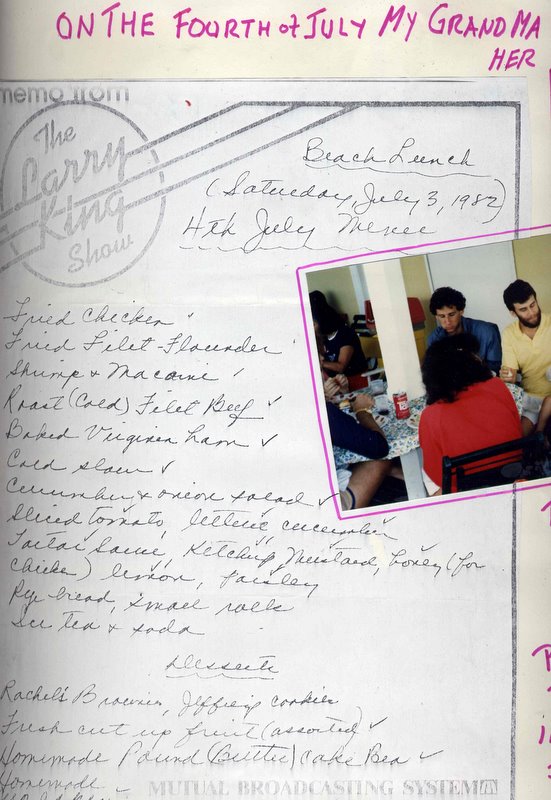 ON THE FOURTH of JULY MY GRANDMA
HER
memo from
The
Larry
King
Show
Beach Lunch
(Saturday, July 3, 1982)
4th July Menu
Fried Chicken
Fried Filet-Flounder
Shrimp & Macaroni
Roast (Cold) Filet Beef
Baked Virginia ham
Cold slaw
Cucumber & onion salad
Sliced tomato, lettuce, cucumber
Tartar Sauce, Ketchup, Mustard, honey (for
chicken) lemon, parsley
Rye bread, small rolls
Ice tea & soda
Desserts
Rachel's Brownies, Jeffrey's cookies
Fresh cut up fruit (assorted)
Homemade Pound (Butter) cake Bea
Homemade
MUTUAL BROADCASTING SYSTEM